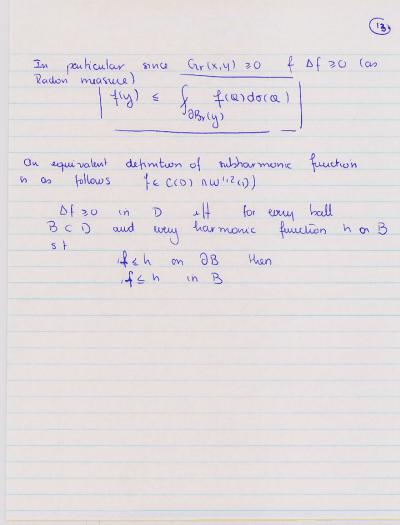 13
In particular since Gr(x,y) ≥ 0 & Δf ≥ 0 (as
Radon measure)
f(y) ≤ ⨍_{∂Br(y)} f(Q)dσ(Q)
An equivalent definition of subharmonic function
is as follows f ∈ C(D) ∩ W^{1,2}(D)
Δf ≥ 0 in D iff for every ball
B ⊂ D and every harmonic function h on B
s t
f ≤ h on ∂B then
f ≤ h in B